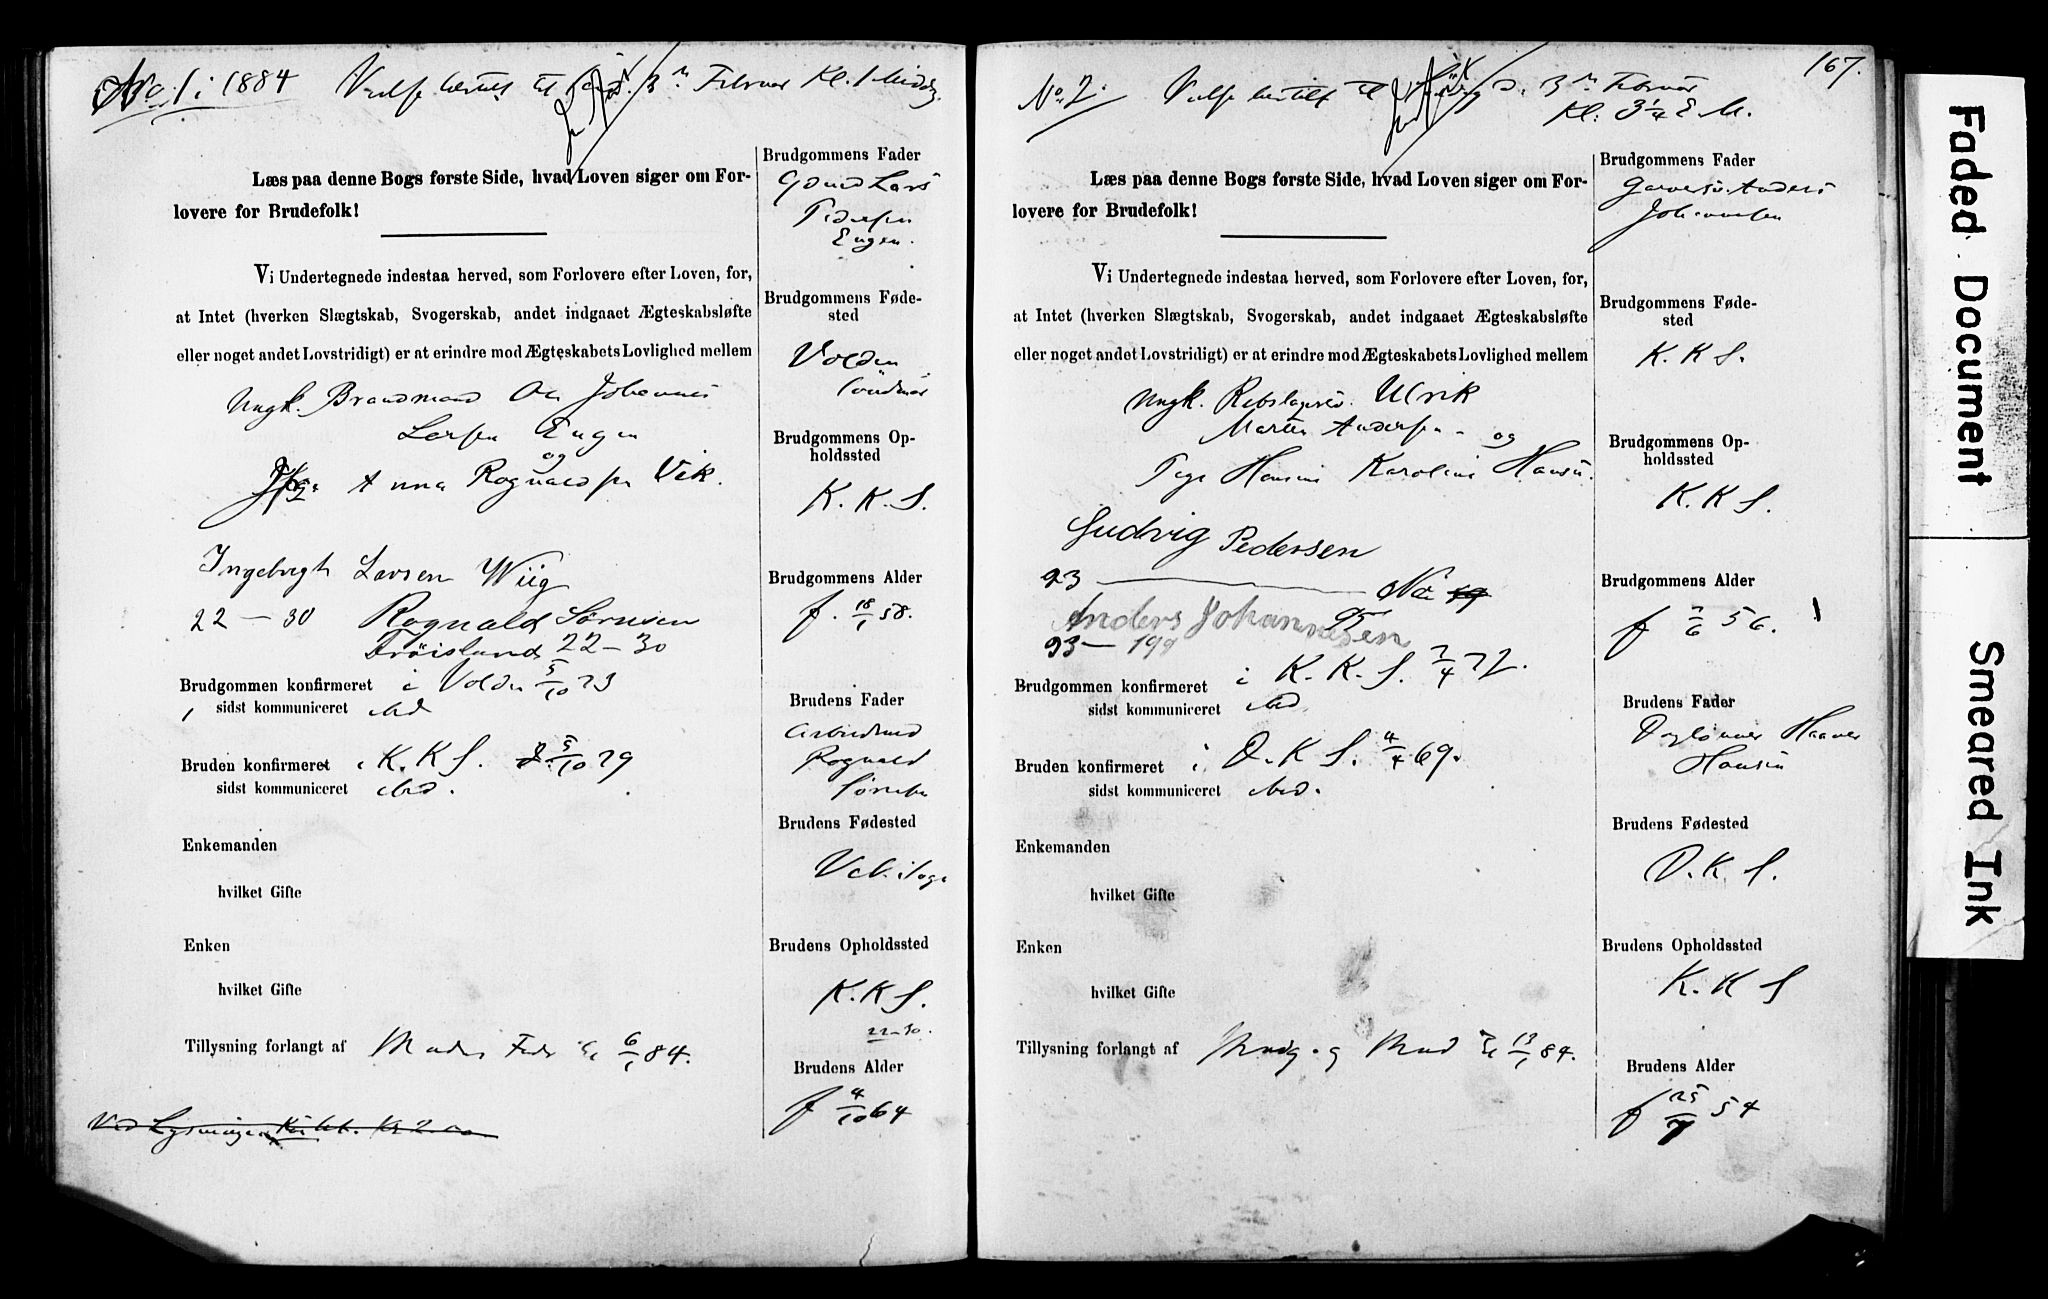 No. 1 i 1884 Vielse bestilt til Søndag d. 3 Februar Kl. 1 Middg.
Læs paa denne Bogs første Side, hvad Loven siger om For-
lovere for Brudefolk!
Vi Undertegnede indestaa herved, som Forlovere efter Loven, for,
at Intet (hverken Slægtskab, Svogerskab, andet indgaaet Ægteskabsløfte
eller noget andet Lovstridigt) er at erindre mod Ægteskabets Lovlighed mellem
Ungk. Brandmand Johannes
Larsen
og
Anna Rognaldsen Vik.
Ingebrigt Larsen Wiig
22 — 30 Rognald Sørnsen
22 — 30
Brudgommen konfirmeret i Volden 5/10 73
sidst kommuniceret ibid
Bruden konfirmeret i K. K S. 5/10 79
sidst kommuniceret ibid.
Enkemanden
hvilket Gifte
Enken
hvilket Gifte
Tillysning forlangt af Brudens Fader 6/1 84.
Ved Lysningen Kr 2.00
Brudgommens Fader
Gmd Lars
Pedersen
BrudgommensFøde-
sted
Volden
Søndmør
Brudgommens Op-
holdssted
K. K. S.
Brudgommens Alder
f. 18/1 58.
Brudens Fader
Arbeidsmd
Rognald
Sørnsen
Brudens Fødested
Brudens Opholdssted
K. K S.
22-30.
Brudens Alder
f 4/10 64
167.
No. 2. Vielse bestilt til Søndag d. 3 Februar
Kl. 3 1/4 E. M.
Læs paa denne Bogs første Side, hvad Loven siger om For-
lovere for Brudefolk!
Vi Undertegnede indestaa herved, som Forlovere efter Loven, for,
at Intet (hverken Slægtskab, Svogerskab, andet indgaaet Ægteskabsløfte
eller noget andet Lovstridigt) er at erindre mod Ægteskabets Lovlighed mellem
Ungk. Rebslagersv. Ulrik
Martin Andersen - og
Pige Hansine Karoline Hansen.
Ludvig Pedersen
23
Anders Johannesen
93 — 199
Brudgommen konfirmeret i K. K. S. 7/4 72.
sidst kommuniceret ibid
Bruden konfirmeret i D. K S. 4/4 69.
sidst kommuniceret ibid.
Enkemanden
hvilket Gifte
Enken
hvilket Gifte
Tillysning forlangt af Brudg. og Brud 13/1 84.
Brudgommens Fader
Garversv. Anders
Johannesen
Brudgommens Føde-
sted
K. K S.
Brudgommens Op-
holdssted
K. K S.
Brudgommens Alder
f 7/6 56.
Brudens Fader
Daglønner
Hansen
Brudens Fødested
D. K S.
Brudens Opholdssted
K. K S
Brudens Alder
f 25/7 54
Faded Document
Smeared Ink